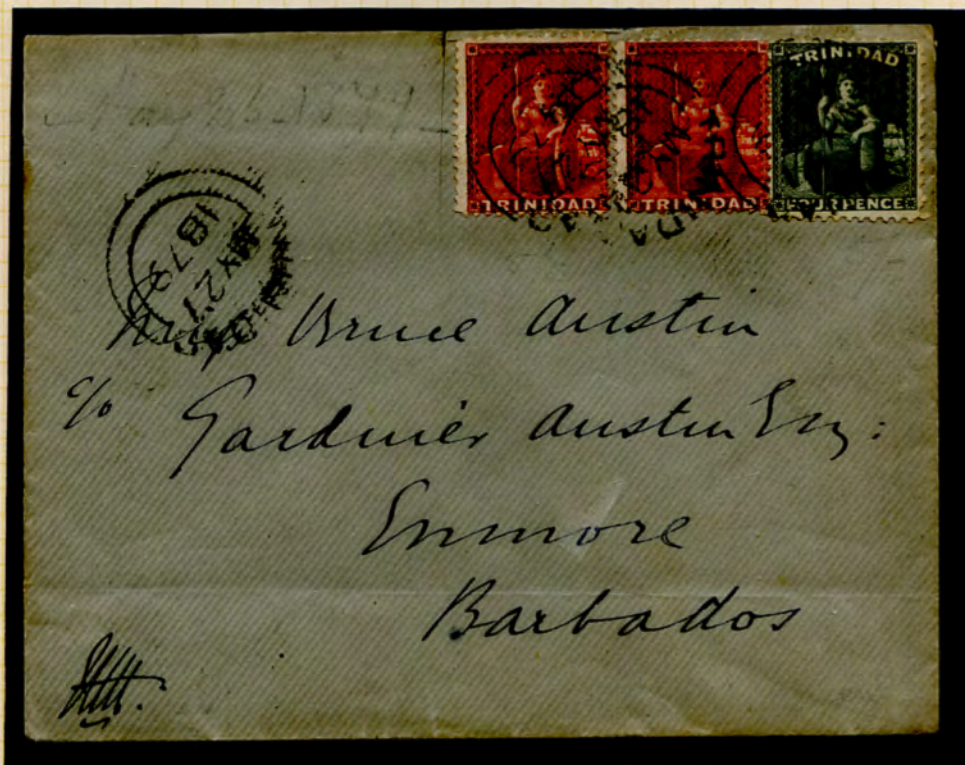 TRINIDAD
TRINIDAD
TRINIDAD
FOUR PENCE
MY 27
1879
Bruce Austin
c/o Gardinier Austin Esq:
Enmore
Barbados